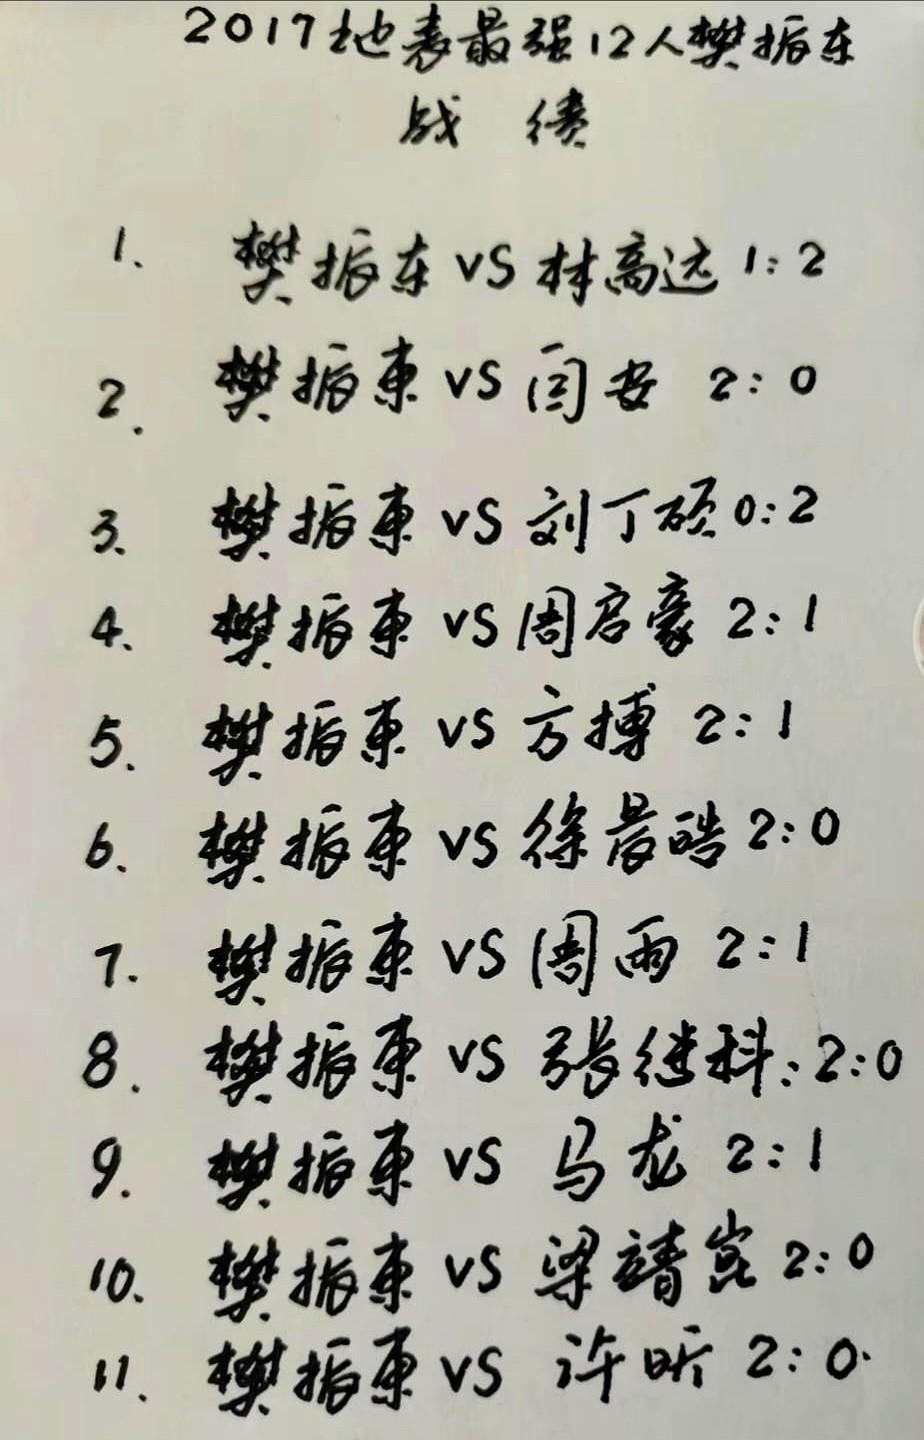 2017地表最强12人樊振东
战绩
1. 樊振东 VS 林高远 1:2
2. 樊振東 VS 闫安 2:0
3. 樊振東 VS 刘丁硕 0:2
4. 樊振東 VS 周启豪 2:1
5. 樊振東 VS 方搏 2:1
6. 樊振東 VS 徐晨皓 2:0
7. 樊振東 VS 周雨 2:1
8. 樊振東 VS 張继科:2:0
9. 樊振東 VS 马龙 2:1
10. 樊振東 VS 梁靖崑 2:0
11. 樊振東 VS 许昕 2:0.